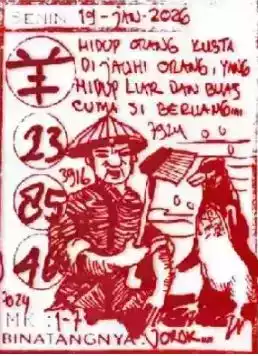 SENIN 19-JAN-2026
HIDUP ORANG KUSTA
DI JAUHI ORANG, YANG
HIDUP LIAR DAN BUAS
CUMA SI BERUANG....
羊
7924
23
3916
85
46
7024
MK : 1-7
BINATANGNYA : JOROK....